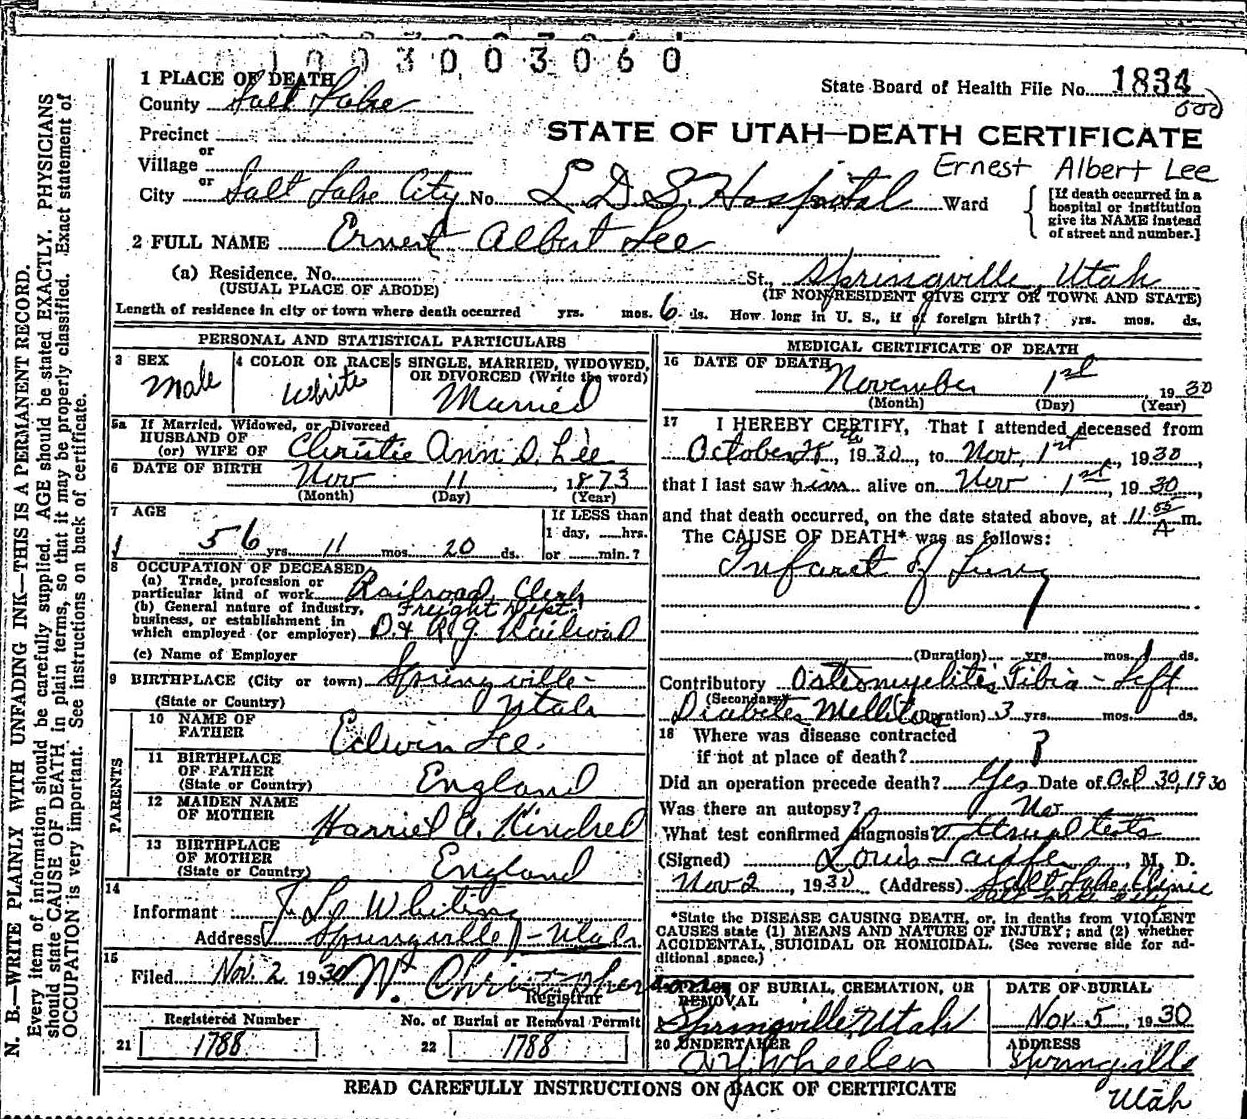 1003003060
1 PLACE OF DEATH
County Salt Lake
State Board of Health File No. 1834
Precinct
or
Village
STATE OF UTAH—DEATH CERTIFICATE
Ernest Albert Lee
or
City Salt Lake City No. L. D. S. Hospital Ward
[If death occurred in a
hospital or institution
give its NAME instead
of street and number.]
2 FULL NAME Ernest Albert Lee
(a) Residence. No. St., Springville, Utah
(USUAL PLACE OF ABODE) (IF NON RESIDENT GIVE CITY OR TOWN AND STATE)
Length of residence in city or town where death occurred yrs. mos. 6 ds. How long in U. S., if of foreign birth? yrs. mos. ds.
PERSONAL AND STATISTICAL PARTICULARS
3 SEX
Male
4 COLOR OR RACE
White
5 SINGLE, MARRIED, WIDOWED,
OR DIVORCED (Write the word)
Married
5a If Married, Widowed, or Divorced
HUSBAND OF
(or) WIFE OF Christie Ann D. Lee
6 DATE OF BIRTH Nov 11, 1873
(Month) (Day) (Year)
7 AGE
56 yrs. 11 mos. 20 ds.
If LESS than
1 day, hrs.
or min.?
8 OCCUPATION OF DECEASED
(a) Trade, profession or
particular kind of work Railroad Clerk
(b) General nature of industry, Freight Dept.
business, or establishment in
which employed (or employer) D. & R. G. Railroad
(c) Name of Employer
9 BIRTHPLACE (City or town) Springville-
(State or Country) Utah
PARENTS
10 NAME OF
FATHER Edwin Lee.
11 BIRTHPLACE
OF FATHER England
(State or Country)
12 MAIDEN NAME
OF MOTHER Harriel A. Kindred
13 BIRTHPLACE
OF MOTHER England
(State or Country)
14
Informant Whiting
Address Springville - Utah
15
Filed Nov. 2 1930 W. Christopherson
Registrar
Registered Number No. of Burial or Removal Permit
21 1788 22 1788
MEDICAL CERTIFICATE OF DEATH
16 DATE OF DEATH
November 1st 1930
(Month) (Day) (Year)
17 I HEREBY CERTIFY, That I attended deceased from
October 28th, 1930, to Nov, 1st, 1930,
that I last saw him alive on Nov 1st, 1930,
and that death occurred, on the date stated above, at 11 55 A. m.
The CAUSE OF DEATH* was as follows:
Infarct of Lung
(Duration) yrs. mos. 1 ds.
Contributory Osteomyelitis Tibia - Left
(Secondary)
Diabetes Mellitus (Duration) 3 yrs. mos. ds.
18 Where was disease contracted
if not at place of death? ?
Did an operation precede death? Yes Date of Oct 30, 1930
Was there an autopsy? No
What test confirmed diagnosis? usual tests
(Signed) Louis, M. D.
Nov 2, 1930 (Address) Salt Lake Clinic
Salt Lake City
*State the DISEASE CAUSING DEATH, or, in deaths from VIOLENT
CAUSES state (1) MEANS AND NATURE OF INJURY; and (2) whether
ACCIDENTAL, SUICIDAL OR HOMICIDAL. (See reverse side for ad-
ditional space.)
OF BURIAL, CREMATION, OR
REMOVAL
Springville, Utah
DATE OF BURIAL
Nov. 5, 1930
20 UNDERTAKER
A. Y. Wheeler
ADDRESS
Springville
Utah
READ CAREFULLY INSTRUCTIONS ON BACK OF CERTIFICATE
N. B.—WRITE PLAINLY WITH UNFADING INK—THIS IS A PERMANENT RECORD.
Every item of information should be carefully supplied. AGE should be stated EXACTLY. PHYSICIANS
should state CAUSE OF DEATH in plain terms, so that it may be properly classified. Exact statement of
OCCUPATION is very important. See instructions on back of certificate.